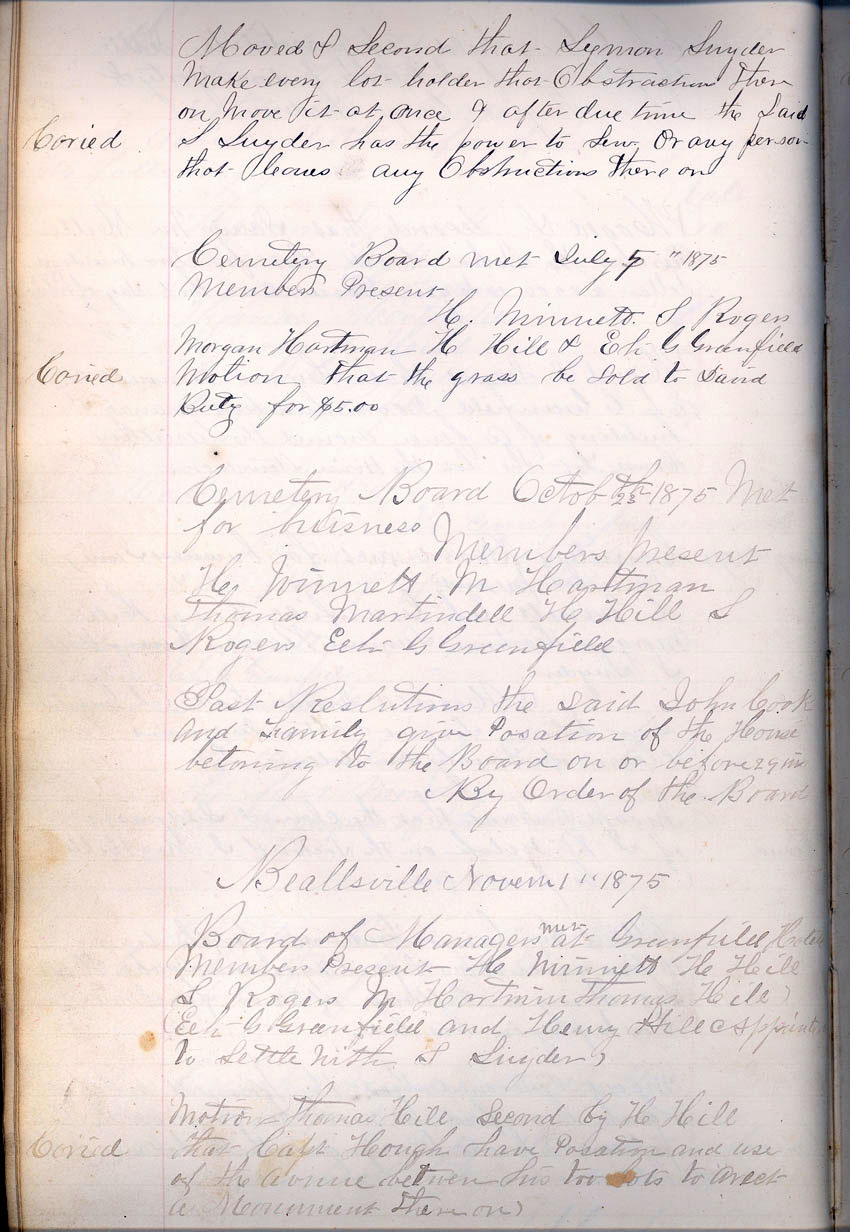 Moved & Second that Symon Snyder
Make every lot holder that Obstraction There
on Move it at once & after due time the Said
Coried S Snyder has the power to Sew Or any person
that leaves any Obstructions There on
Cemetery Board met July 5 " 1875
Members Present
H. Winnett S Rogers
Morgan Hartman H Hill & Eli G Greenfield
Coried Motion that the grass be Sold to David
Ruty for $5.00
Cemetery Board Octob 23th 1875 Met
for buisness
Members present
H. Winnett M Hartman
Thomas Martindell H Hill S
Rogers Eli G Greenfield
Past Reslutions the said John Cook
and Family give Posation of the House
beloning to the Board on or before 29
By Order of the Board
Beallsville Novem 1 " 1875
Board of Managers met at Greenfield Hotel
Members Present H Winnett H Hill
S Rogers M Hartman Thomas Hill)
(Eli G Greenfield and Henry Hill Appointed
to Settle With S Snyder)
Motion Thomas Hill Second by H Hill
Coried that Capt Hough have Posation and use
of the avenue between his too lots to arect
a Monument There on)